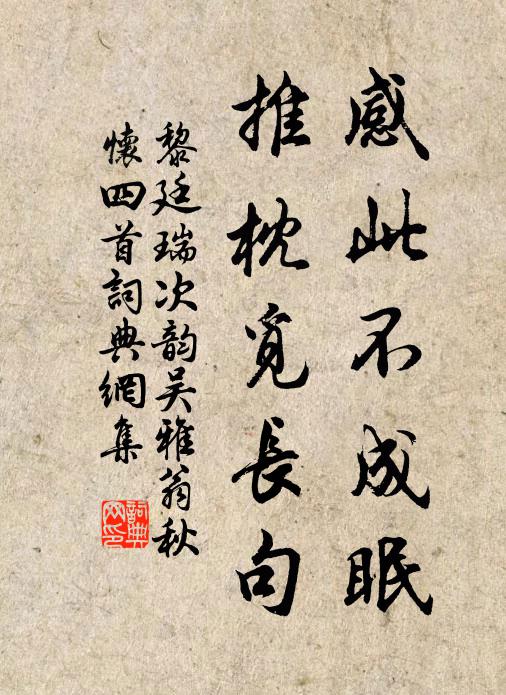 感此不成眠
推枕覓長句
黎廷瑞次韵吴雅翁秋
懷四首詞典網集
詞典
网印